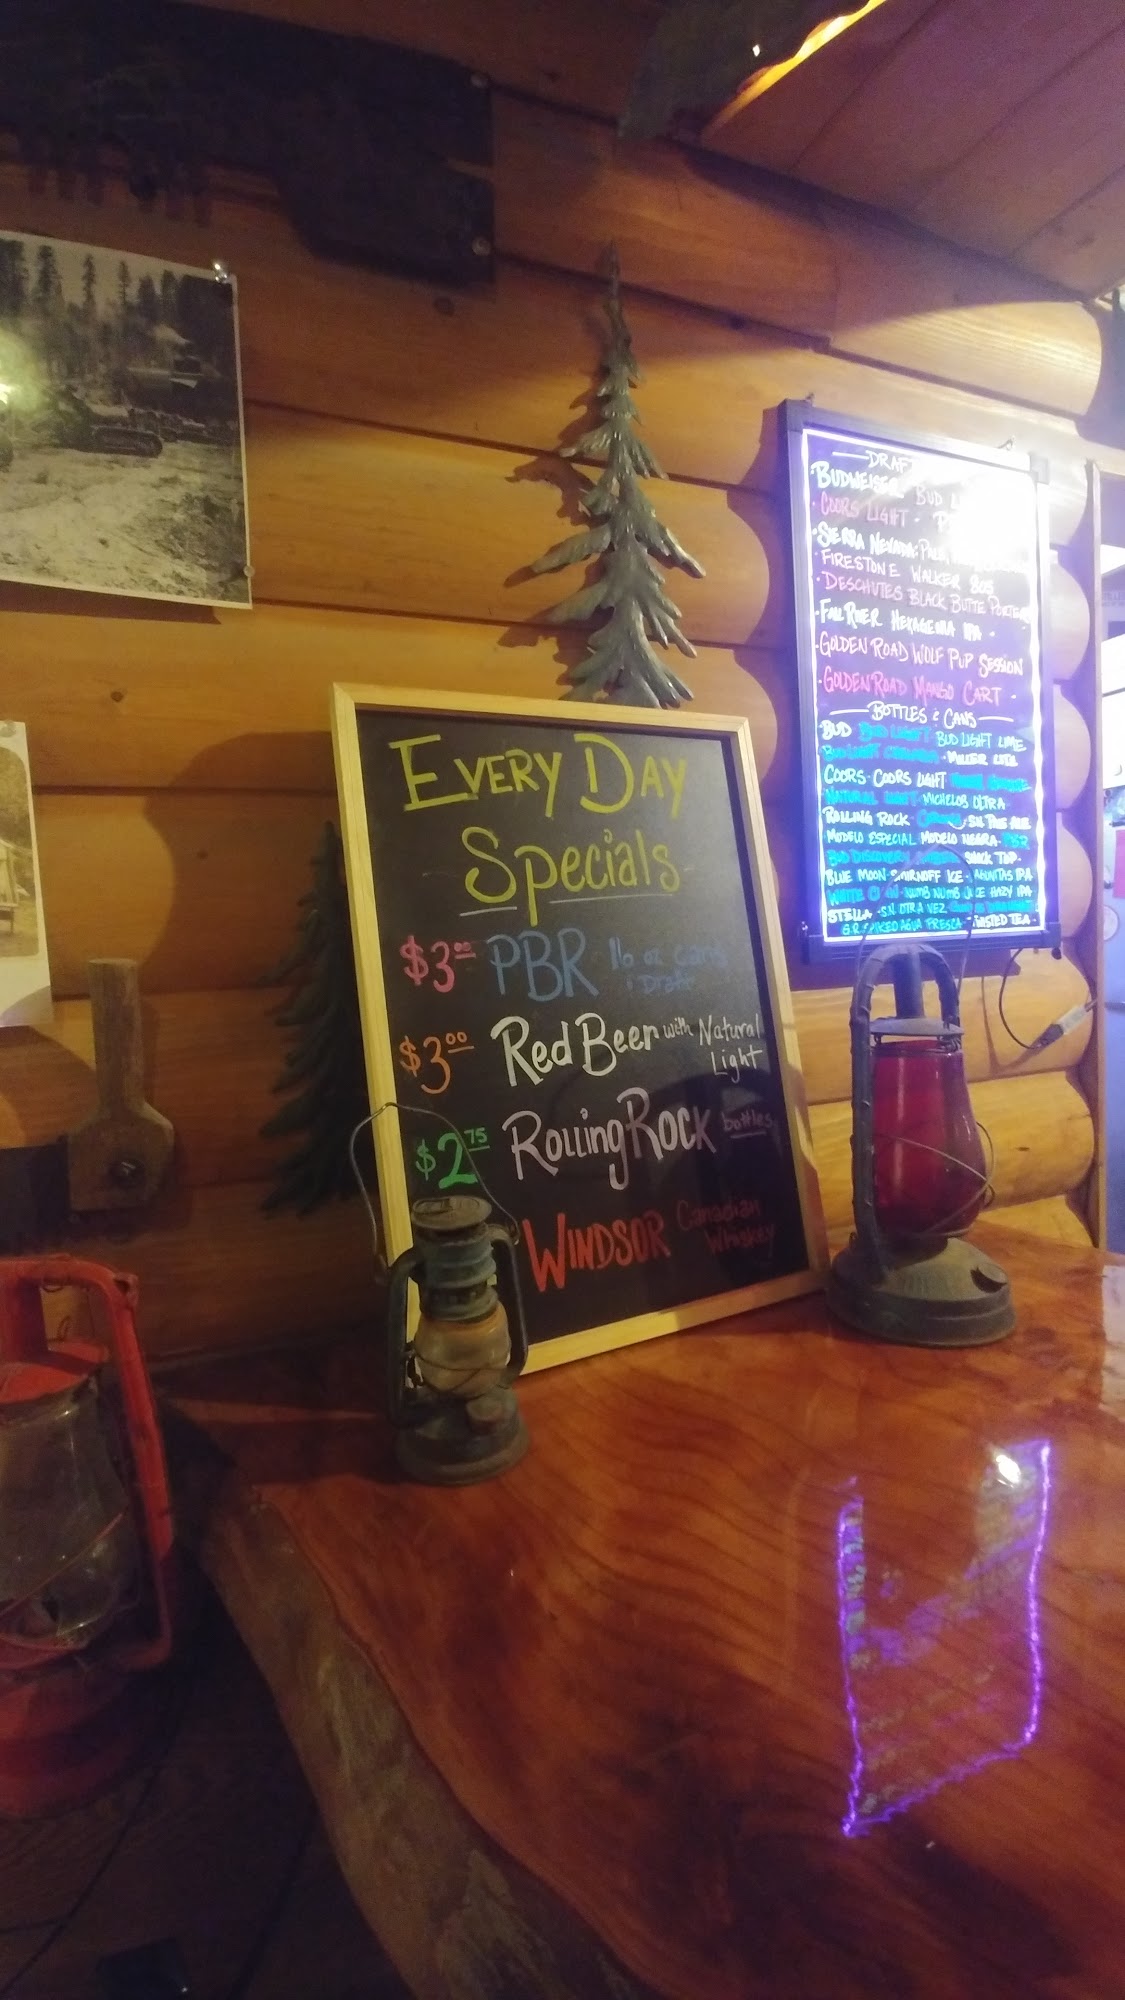 EVERY DAY
Specials
$3.00 PBR 16 oz cans
& Draft
$3.00 Red Beer with Natural
Light
$2.75 Rolling Rock bottles
WINDSOR Canadian
Whiskey
BUDWEISER BUD
COORS LIGHT
SIERRA NEVADA:
FIRESTONE WALKER 805
DESCHUTES BLACK BUTTE PORTER
FALL RIVER HEXAGENIA IPA
GOLDEN ROAD WOLF PUP SESSION
GOLDEN ROAD MANGO CART
BOTTLES & CANS
BUD BUD LIGHT BUD LIGHT LIME
MILLER LITE
COORS · COORS LIGHT
NATURAL LIGHT · MICHELOB ULTRA
ROLLING ROCK · CORONA · S.N. PALE ALE
MODELO ESPECIAL MODELO NEGRA · PBR
SHOCK TOP
BLUE MOON · SMIRNOFF ICE · LAGUNITAS IPA
WHITE CLAW · NUMB NUMB JUICE HAZY IPA
STELLA · S.N. OTRA VEZ
G.R. SPIKED AGUA FRESCA · TWISTED TEA